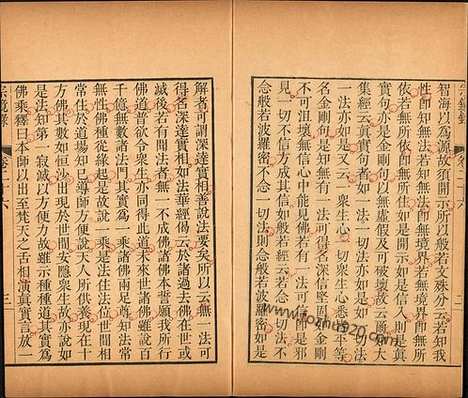 智海以為源故須開示所以般若文殊分云若知我
性即知無法若知無法即無境界若無境界即無所
依若無所依即無所住如是開示如是信入則是真
實句亦是金剛句以無過咎不可破壞故云
集經云真實句者如一法一切法亦如是如一切法
一法亦如是又云一眾生心一切眾生心悉皆平等
名金剛句是知無有一法可得名深信堅固如金剛
不可沮壞無信心中能見佛若有一法可信即是邪
見一切不信方成其信如般若經云若念一切法不
念般若波羅蜜不念一切法則念般若波羅蜜如是
宗鏡錄 卷二十六 三
解者可謂深達實相善說法要矣所以云無一法可
得名深達實相如法華經偈云於諸過去佛在世或
滅後若有聞法者無一不成佛諸佛本誓願我所行
佛道普欲令眾生亦同得此道未來世諸佛雖說百
千億無數諸法門其實為一乘諸佛兩足尊知法常
無性佛種從緣起是故說一乘是法住法位世間相
常住於道場知已導師方便說天人所供養現在十
方佛其數如恒沙出現於世間安隱眾生故亦說如
是法知第一寂滅以方便力故雖示種種道其實為
佛乘釋曰本師云出至梵天之舌相演真實言放一
fozhu920.com